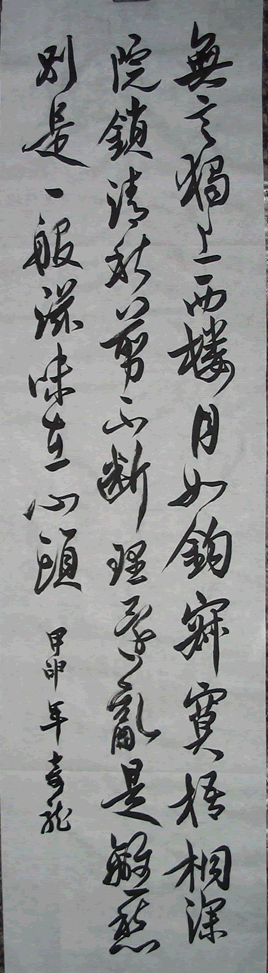 無言獨上西樓月如鈎寂寞梧桐深
院鎖清秋剪不斷理還亂是離愁
別是一般滋味在心頭
甲申年春龍